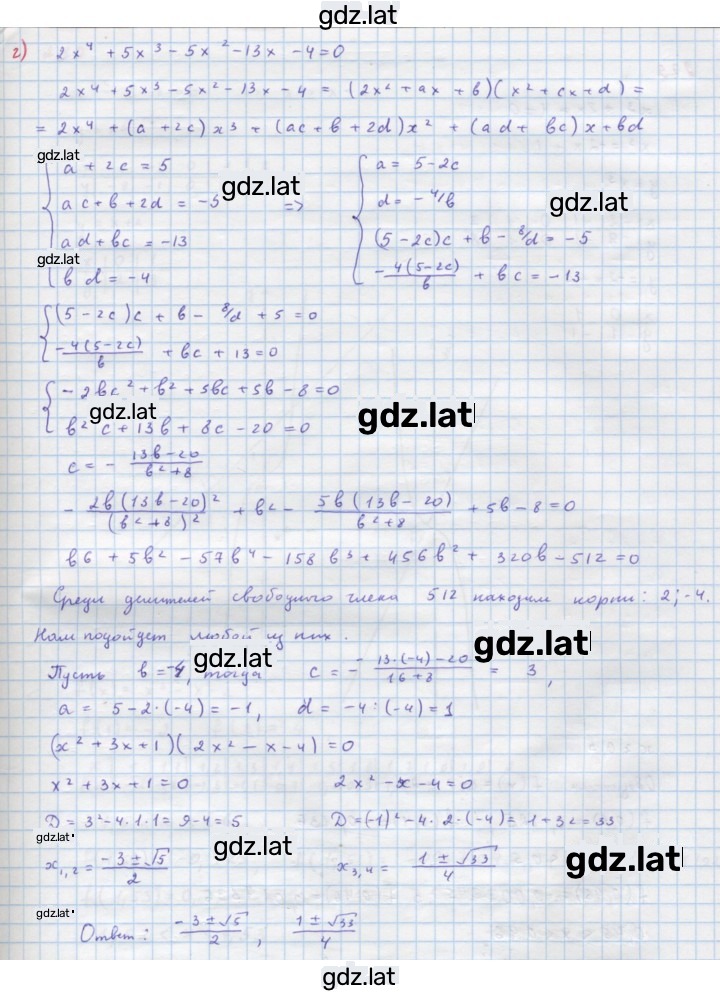 gdz.lat
г) 2x⁴ + 5x³ - 5x² - 13x - 4 = 0
2x⁴ + 5x³ - 5x² - 13x - 4 = (2x² + ax + b)(x² + cx + d) =
= 2x⁴ + (a + 2c)x³ + (ac + b + 2d)x² + (ad + bc)x + bd
gdz.lat
{ a + 2c = 5
ac + b + 2d = -5
ad + bc = -13
bd = -4
=>
{ a = 5 - 2c
d = -4/b
(5 - 2c)c + b - 8/d = -5
-4(5-2c)/b + bc = -13
gdz.lat
gdz.lat
gdz.lat
{ (5 - 2c)c + b - 8/d + 5 = 0
-4(5-2c)/b + bc + 13 = 0
{ -2bc² + b² + 5bc + 5b - 8 = 0
b²c + 13b + 8c - 20 = 0
gdz.lat
gdz.lat
c = - (13b-20)/(b²+8)
- 2b(13b-20)²/(b²+8)² + b² - 5b(13b-20)/(b²+8) + 5b - 8 = 0
b6 + 5b² - 57b⁴ - 158b³ + 456b² + 320b - 512 = 0
Среди делителей свободного члена 512 находим корни: 2; -4.
Нам подойдет любой из них.
gdz.lat
gdz.lat
Пусть b = -4, тогда c = - (13·(-4)-20)/(16+8) = 3,
a = 5 - 2·(-4) = -1, d = -4 : (-4) = 1
(x² + 3x + 1)(2x² - x - 4) = 0
x² + 3x + 1 = 0 2x² - x - 4 = 0
D = 3² - 4·1·1 = 9 - 4 = 5 D = (-1)² - 4·2·(-4) = 1 + 32 = 33
gdz.lat
gdz.lat
gdz.lat
x₁,₂ = (-3 ± √5)/2 x₃,₄ = (1 ± √33)/4
gdz.lat
Ответ: (-3 ± √5)/2, (1 ± √33)/4
gdz.lat